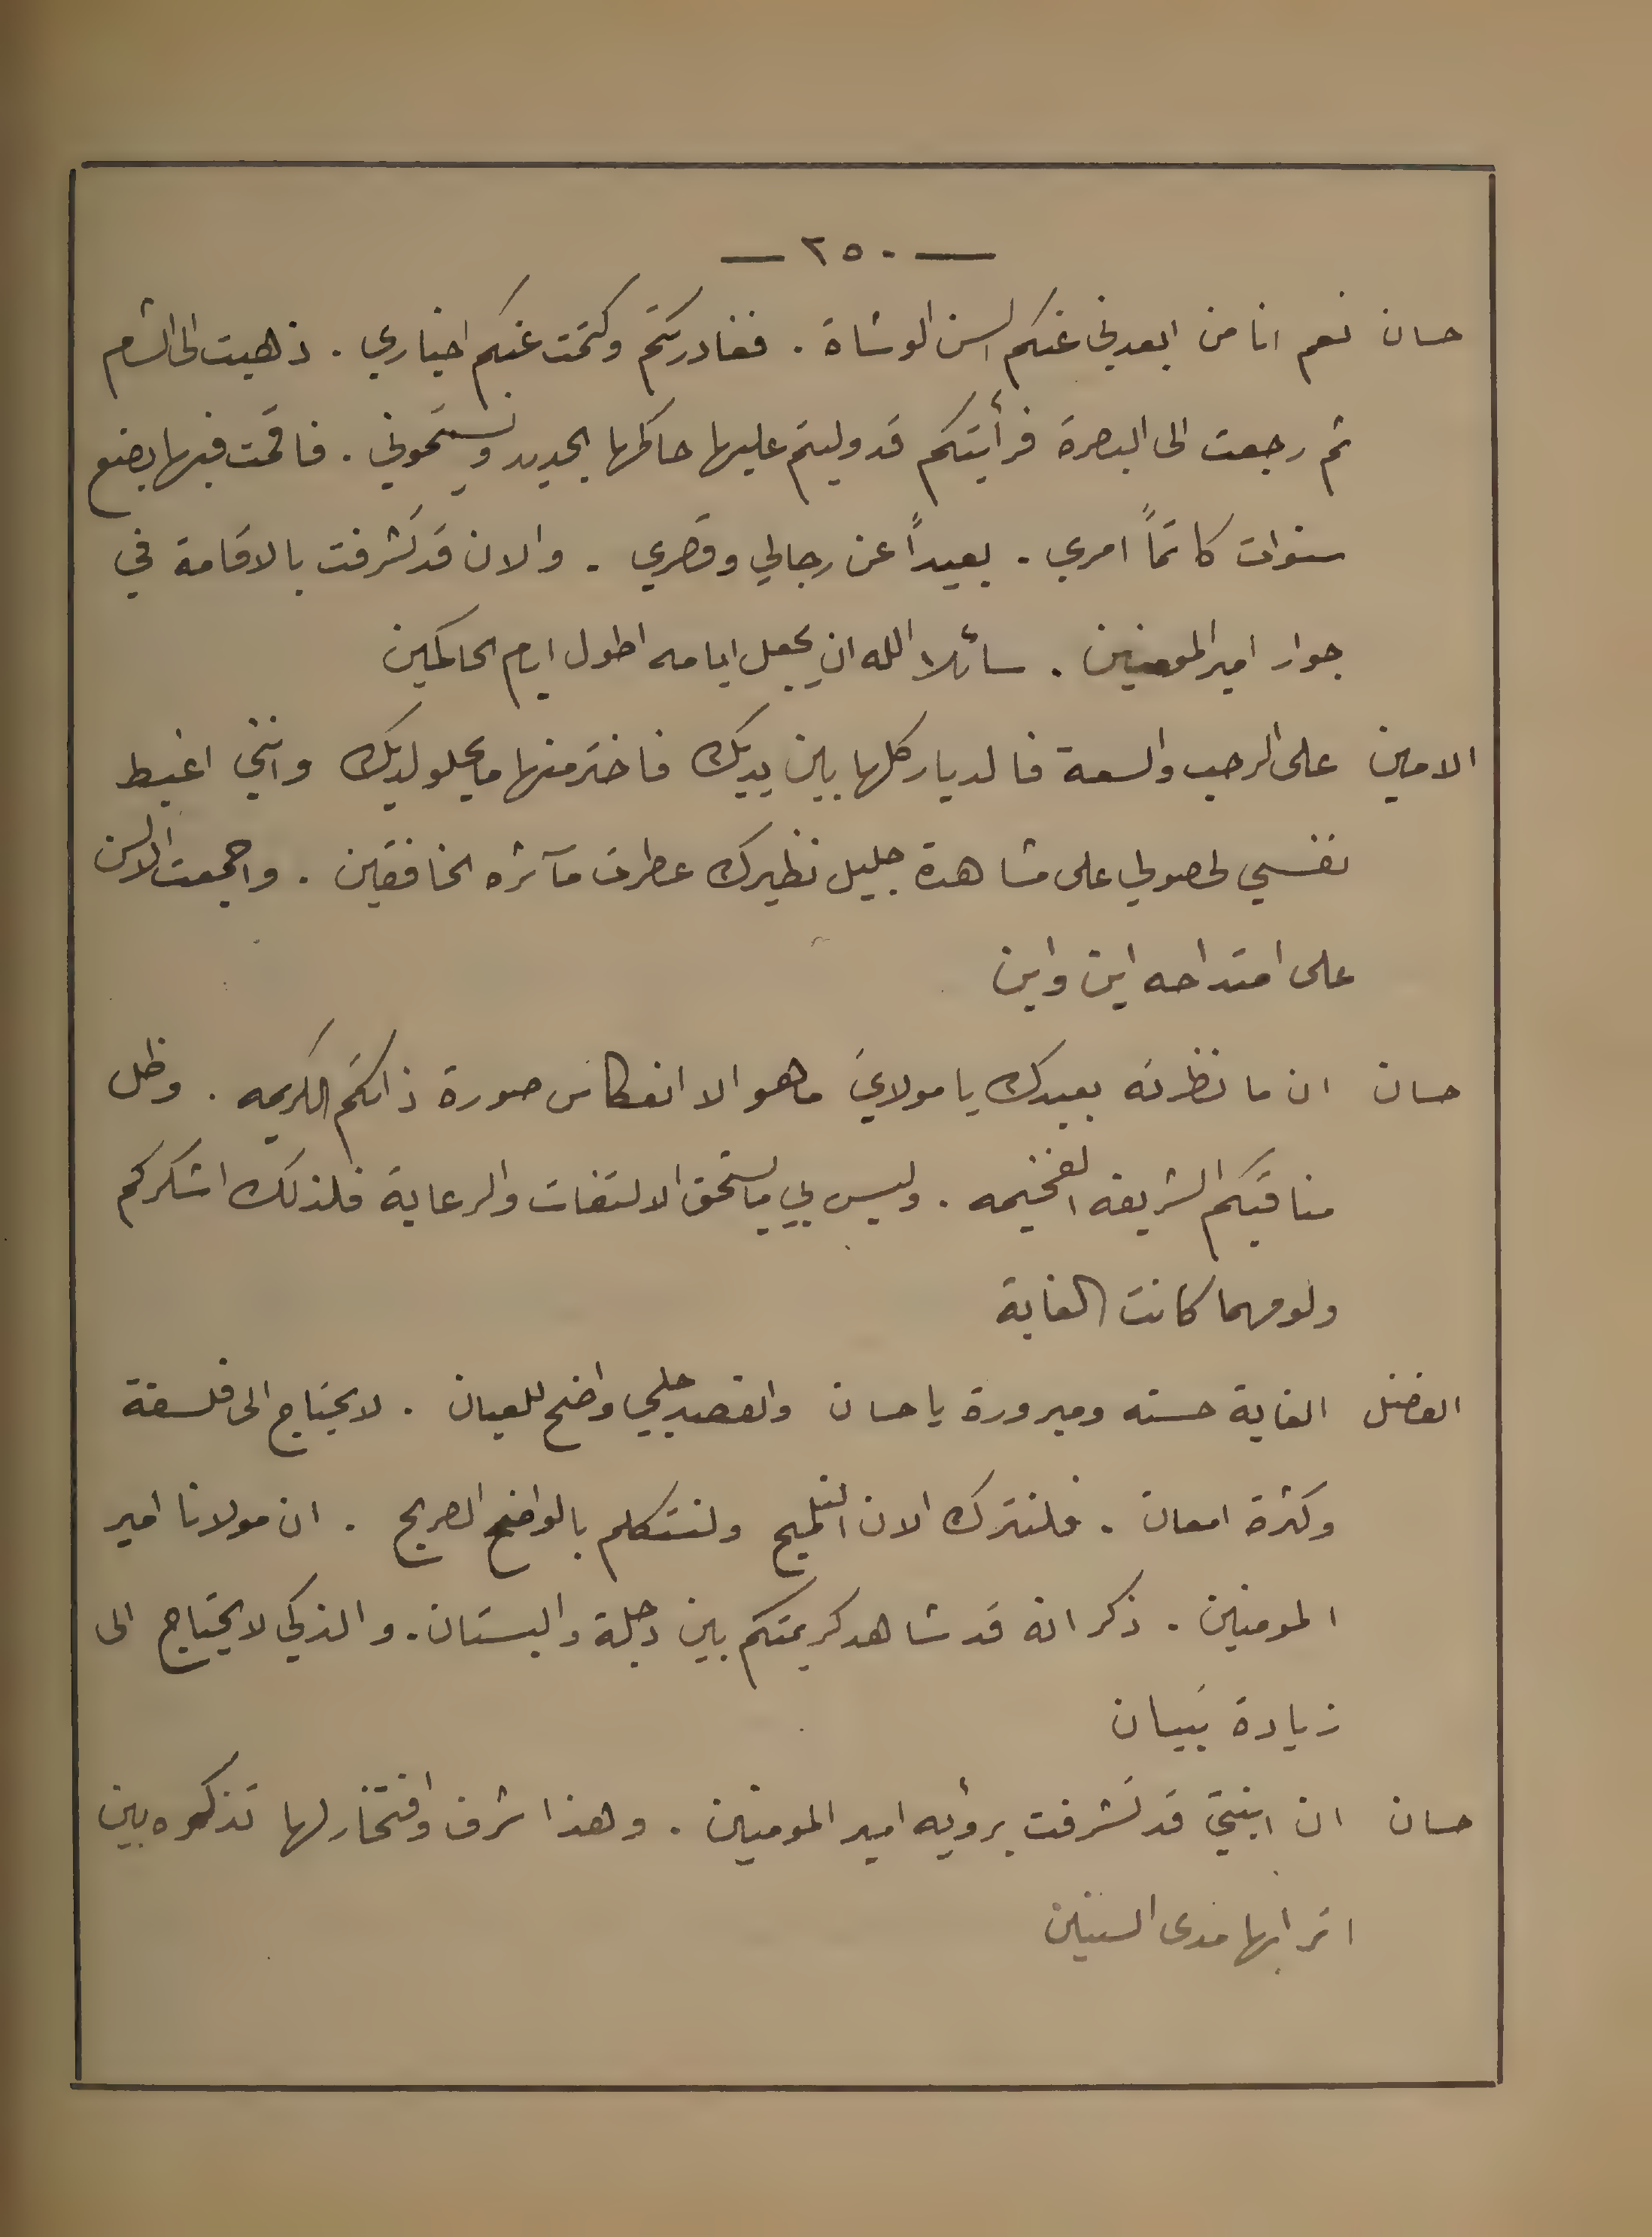 — ٢٥٠ —
حسان نعم انا من ابعدني عنكم السن الوشاة . فغادرتكم وكتمت عنكم اخباري . ذهبت الى الشام
ثم رجعت الى البصرة فرأيتكم قد وليتم عليها حاكمها الجديد ونسيتموني . فاقمت فيها بضع
سنوات كاتماً امري . بعيداً عن رجالي وقصري . والان قد تشرفت بالاقامة في
جوار امير المومنين . سائلا الله ان يجعل ايامه اطول ايام الحاكمين
الامين على الرحب والسعة فالديار كلها بين يديك فاختر منها ما يحلو لديك وانني اغبط
نفسي لحصولي على مشاهدة جليل نظيرك عطرت مآثره الخافقين . واجمعت الالسن
على امتداحه اين واين
حسان ان ما نظرته بعبدك يا مولاي ما هو الا انعكاس صورة ذاتكم الكريمه . وظل
مناقبكم الشريفه الفخيمه . وليس بي ما يستحق الالتفات والرعاية فلذلك اشكركم
ولو مهما كانت الغاية
الفضل الغاية حسنه ومبرورة يا حسان والقصد جلي واضح للعيان . لا يحتاج الى فلسفة
وكثرة امعان . فلنترك الان التلميح ولنتكلم بالواضح الصريح . ان مولانا امير
المومنين . ذكر انه قد شاهد كريمتكم بين دجلة والبستان . والذكي لا يحتاج الى
زيادة بيان
حسان ان ابنتي قد تشرفت برؤيه امير المومنين . وهذا شرف وافتخار لها تذكره بين
اترابها مدى السنين